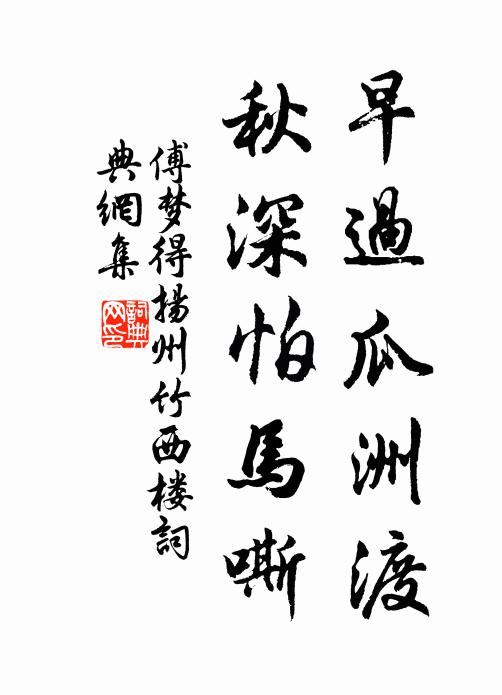 早過瓜洲渡
秋深怕馬嘶
傅梦得揚州竹西楼詞
典網集
詞典網印